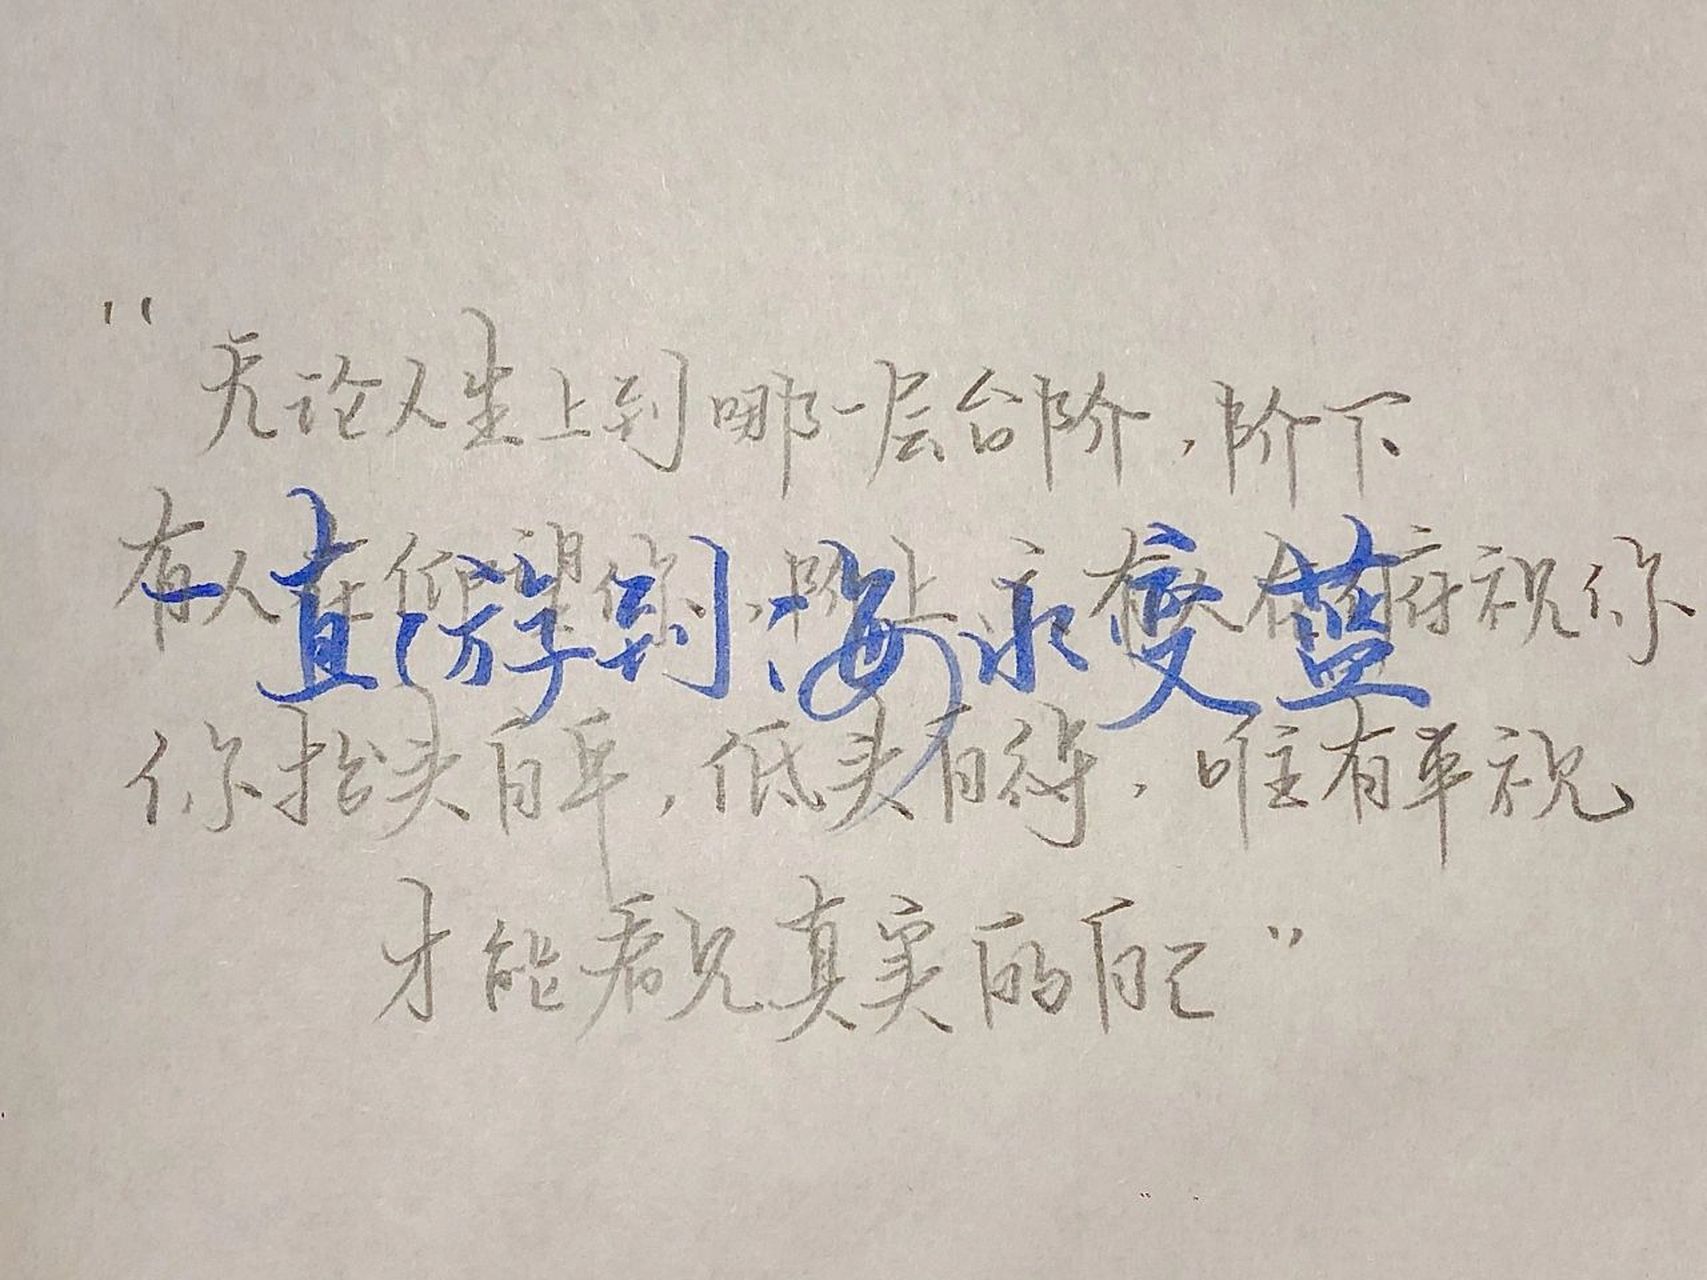 “无论人生上到哪一层台阶,阶下
有人在仰望你,阶上亦有人在俯视你
一直游到海水变蓝
你抬头自卑,低头自得,唯有平视
才能看见真实的自己”